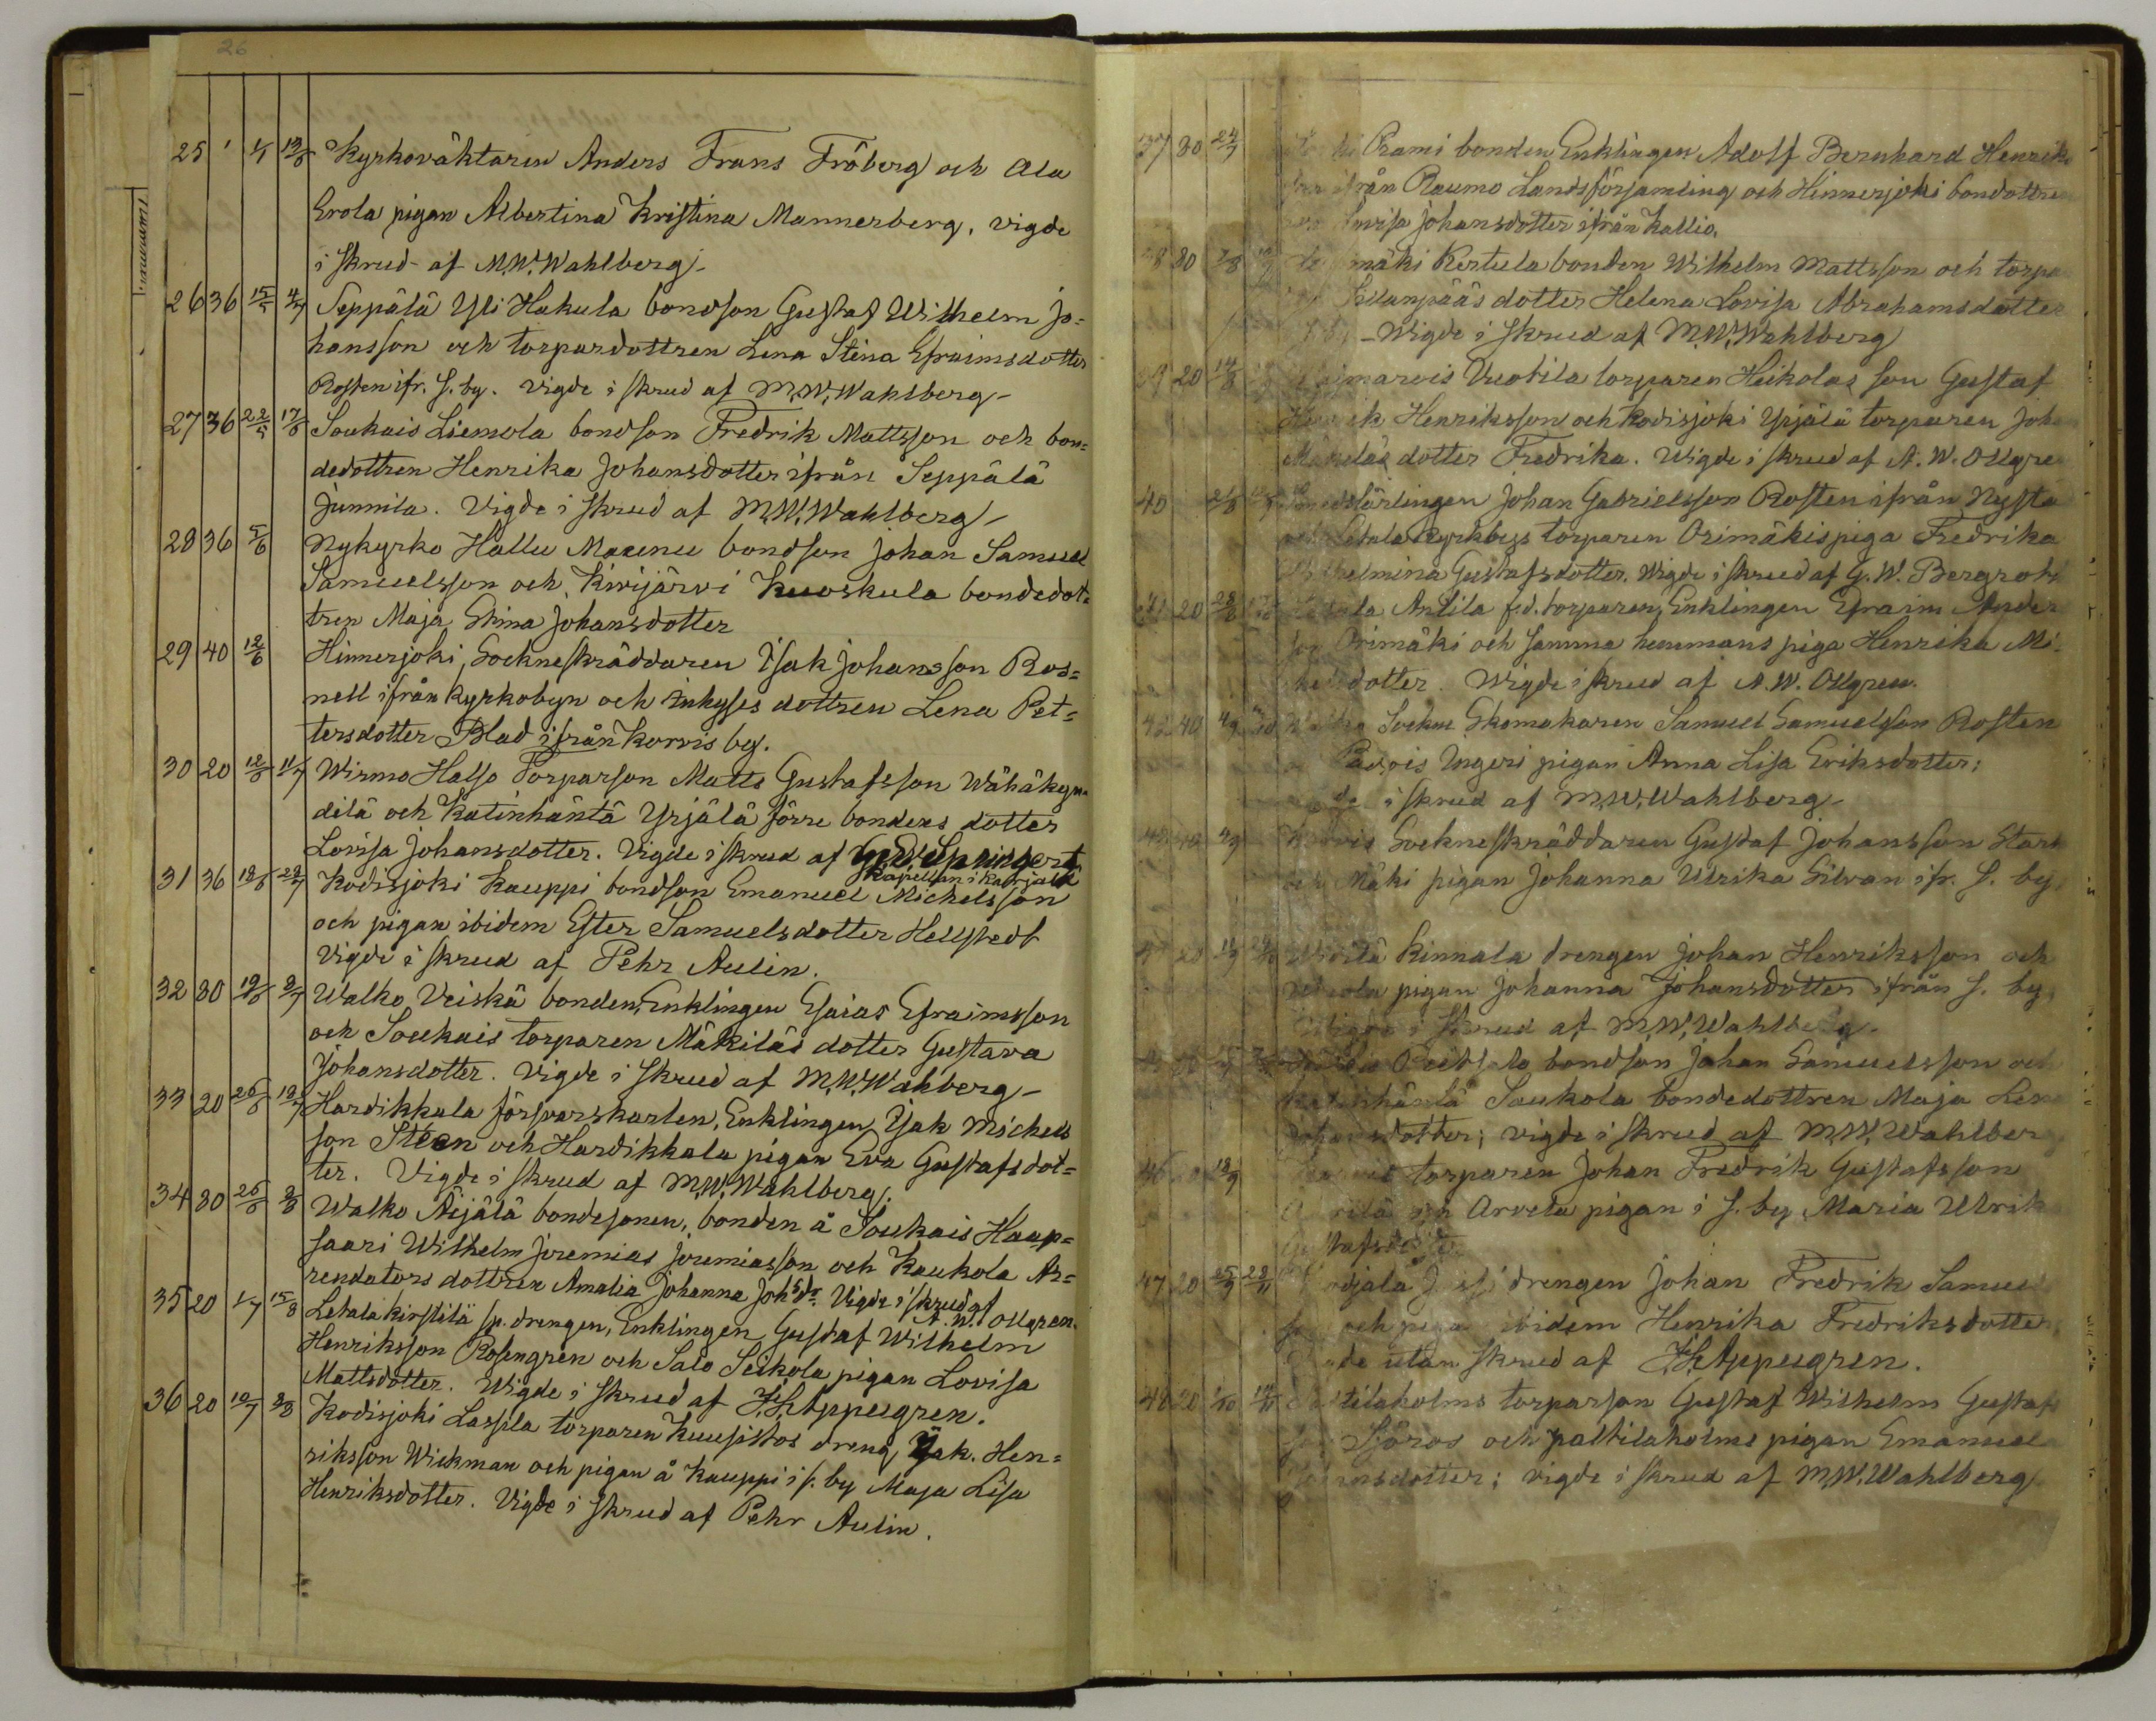 26
25 1 1/5 19/6 Kyrkoväktaren Anders Frans Fröberg och Ala
Erola pigan Albertina Kristina Mannerberg, vigde
i skrud af M.W. Wahlberg
26 36 15/5 4/7 Seppälä Yli Hakula bondson Gustaf Wilhelm Jo=
hansson och torpardottren Lena Stina Efraimsdotter
Rosten ifr. S. by. Vigde i skrud af M.W. Wahlberg
27 36 22/5 17/6 Soukais Liemola bondson Fredrik Mattsson och bon=
dedottren Henrika Johansdotter ifrån Seppälä
Junnila. Vigde i skrud af M.W. Wahlberg
28 36 5/6 Nykyrko Hallu Maunu bondson Johan Samuel
Samuelsson och Kivijärvi Kuoskula bondedot=
tren Maja Stina Johansdotter
29 40 12/6 Hinnerjoki, Sockneskräddaren Isak Johansson Ros=
nell ifrån Kyrkobyn och Inhyses dottren Lena Pet=
tersdotter Blad ifrån Korvis by.
30 20 12/6 11/7 Wirmo Halso Torparson Matts Gustafsson Wähäkyn=
dilä och Katinhäntä Yrjälä förre bondens dotter
Lovisa Johansdotter. Vigde i skrud af Springert
Kapellan i Karjala
31 36 19/6 29/7 Kodisjoki Kauppi bondson Emanuel Michelsson
och pigan ibidem Ester Samuelsdotter Hellstedt
Vigde i skrud af Pehr Aulin.
32 80 19/6 9/7 Walko Veiskä bonden, Enklingen Esaias Efraimsson
och Soukais torparen Mäkiläs dotter Gustava
Johansdotter. Vigde i skrud af M.W. Wahberg
33 20 26/6 18/7 Hardikkala försvarskarlen, Enklingen, Isak Michels
son Steen och Hardikkala pigan Eva Gustafsdot=
ter. Vigde i skrud af M.W. Wahlberg.
34 80 26/6 8/8 Walko Äijälä bondesonen, bonden å Soukais Haap=
saari Wilhelm Jeremias Jeremiasson och Kaukola Ar=
rendators dottren Amalia Johanna Johsdr. Vigde i skrud af
A. W. Ollgren.
35 20 1/7 15/8 Letala Kirstilä sp. drengen, Enklingen Gustaf Wilhelm
Henriksson Rosengren och Salo Seikola pigan Lovisa
Mattsdotter. Wigde i skrud af Appelgren.
36 20 10/7 8/8 Kodisjoki Lassila torparen Kuusistos dreng Isak. Hen=
riksson Wickman och pigan å Kauppi i s. by Maja Lisa
Henriksdotter. Vigde i skrud af Pehr Aulin.
37 80 24/7 Rami bonden Enklingen Adolf Bernhard Henriks
ifrån Raumo Landsförsamling och Hinnerjoki bondottren
Lovisa Johansdotter ifrån Kallio.
38 80 7/8 mäki Kertula bonden Wilhelm Mattsson och torpa
dotter Helena Lovisa Abrahamsdotter
Wigde i skrud af M.W. Wahlberg
39 20 14/8 Vuotila torparen Heikolas son Gustaf
Henriksson och Kodisjoki Yrjälä torparen Joh
Mäkeläs dotter Fredrika. Wigde i skrud af A. W. Ollgre
40 21/8 lärlingen Johan Gabrielsson Rosten ifrån Nysta
och Letala Kyrkbys torparen Orimäkis piga Fredrika
helmina Gustafsdotter. Wigde i skrud af G. W. Bergroth
41 20 28/8 Antila f.d. torparen, Enklingen Efraim Ander
son Orimäki och samma hemmans piga Henrika Mi
dotter. Wigde i skrud af A. W. Ollgren.
42 40 4/9 Sockne Skomakaren Samuel Samuelsson Rosten
Ungeri pigan Anna Lisa Eriksdotter;
i skrud af M.W. Wahlberg
43 40 4/9 Korvis Sockneskräddaren Gustaf Johansson Stark
och Mäki pigan Johanna Ulrika Silvan ifr. S. by
20 Kinnala drengen Johan Henriksson och
pigan Johanna Johansdotter ifrån S. by,
Vigde i skrud af M.W. Wahlberg.
bondson Johan Samuelsson och
Katinhäntä Saukola bondedottren Maja Lena
dotter; vigde i skrud af M.W. Wahlber
46 18/9 torparen Johan Fredrik Gustafsson
och Arvela pigan i S. by Maria Ulrik
47 20 25/9 drengen Johan Fredrik Samuel
och piga ibidem Henrika Fredriksdotter
utan skrud af Appelgren.
48 20 1/10 holms torparson Gustaf Wilhelm Gustafs
Sjöros och Paltilaholms pigan Emanuel
dotter; vigde i skrud af M.W. Wahlberg